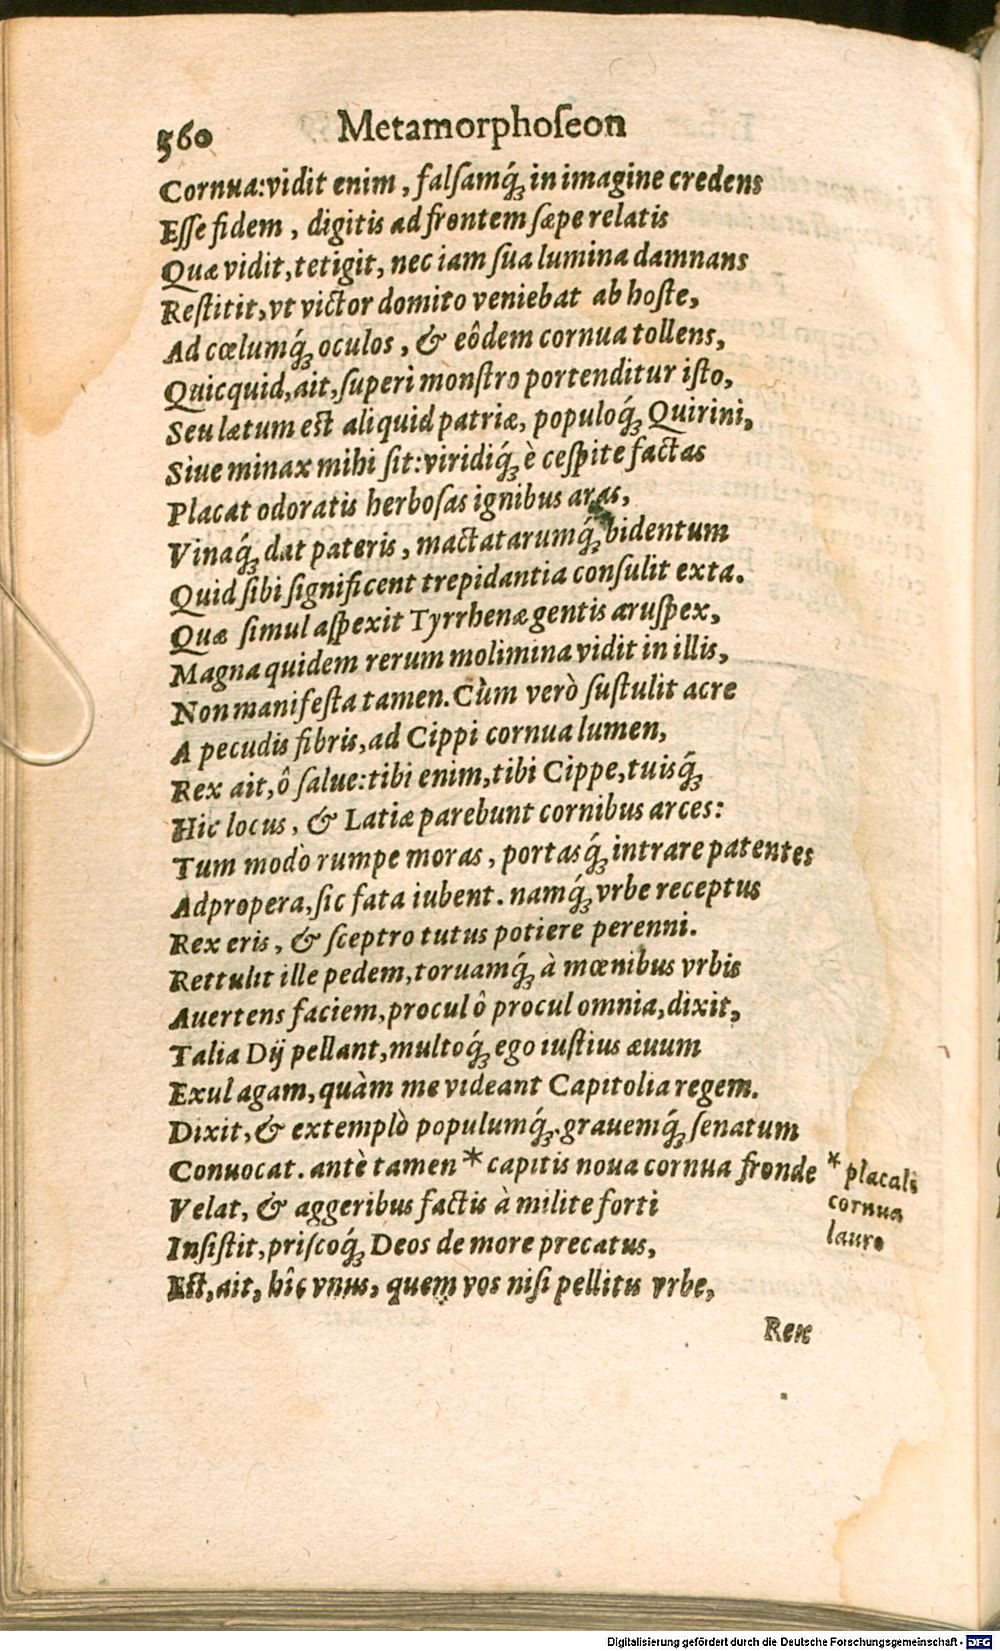 560 Metamorphoſeon
Cornua:vidit enim, falſamq́; in imagine credens
Eſſe fidem, digitis ad frontem ſæpe relatis
Quæ vidit, tetigit, nec iam ſua lumina damnans
Reſtitit, vt victor domito veniebat ab hoſte,
Ad cœlumq́; oculos, & eôdem cornua tollens,
Quicquid, ait, ſuperi monſtro portenditur iſto,
Seu lætum eſt aliquid patriæ, populoq́; Quirini,
Siue minax mihi ſit: viridiq́; è ceſpite factas
Placat odoratis herboſas ignibus aras,
Vinaq́; dat pateris, mactatarumq́; bidentum
Quid ſibi ſignificent trepidantia conſulit exta.
Quæ ſimul aſpexit Tyrrhenæ gentis aruſpex,
Magna quidem rerum molimina vidit in illis,
Non manifeſta tamen. Cùm verò ſuſtulit acre
A pecudis fibris, ad Cippi cornua lumen,
Rex ait, ô ſalue: tibi enim, tibi Cippe, tuisq́;
Hic locus, & Latiæ parebunt cornibus arces:
Tum modò rumpe moras, portasq́; intrare patentes
Adpropera, ſic fata iubent. namq́; vrbe receptus
Rex eris, & ſceptro tutus potiere perenni.
Rettulit ille pedem, toruamq́; à mœnibus vrbis
Auertens faciem, procul ô procul omnia, dixit,
Talia Dij pellant, multoq́; ego iuſtius æuum
Exul agam, quàm me videant Capitolia regem.
Dixit, & extemplò populumq́;. grauemq́; ſenatum
Conuocat. antè tamen * capitis noua cornua fronde
Velat, & aggeribus factis à milite forti
Inſiſtit, priſcoq́; Deos de more precatus,
Eſt, ait, hîc vnus, quem vos niſi pellitis vrbe,
Rex
* placali
cornua
lauro
Digitalisierung gefördert durch die Deutsche Forschungsgemeinschaft - DFG